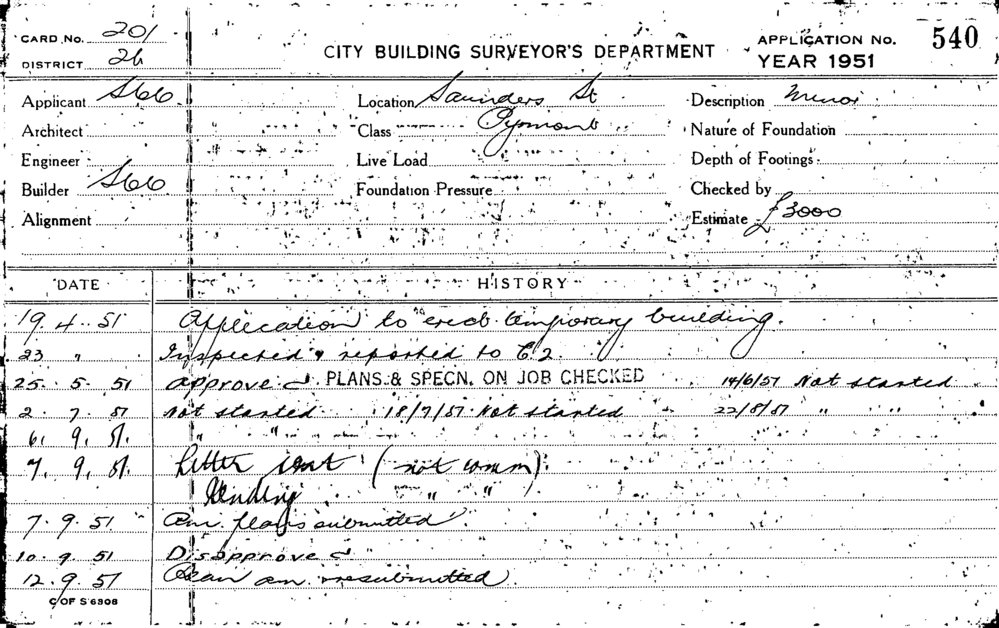 CARD NO. 201
DISTRICT. 26
CITY BUILDING SURVEYOR'S DEPARTMENT
APPLICATION NO. 540
YEAR 1951
Applicant
Location Saunders St
Description Minor
Architect
Class Pyrmont
Nature of Foundation
Engineer
Live Load
Depth of Footings
Builder
Foundation Pressure
Checked by
Alignment
Estimate £3000
DATE HISTORY
19. 4. 51 Application to erect temporary building.
23 " Inspected & reported to
25. 5. 51 Approved PLANS & SPECN. ON JOB CHECKED 14/6/51 Not started
2. 7. 51 Not started 18/7/51 Not started 22/8/51 " "
6. 9. 51. " "
7. 9. 51. Letter sent (not comm).
Pending " "
7. 9. 51 Am. plans submitted.
10. 9. 51 Disapproved
12. 9. 51 am. resubmitted.
C OF S 6308